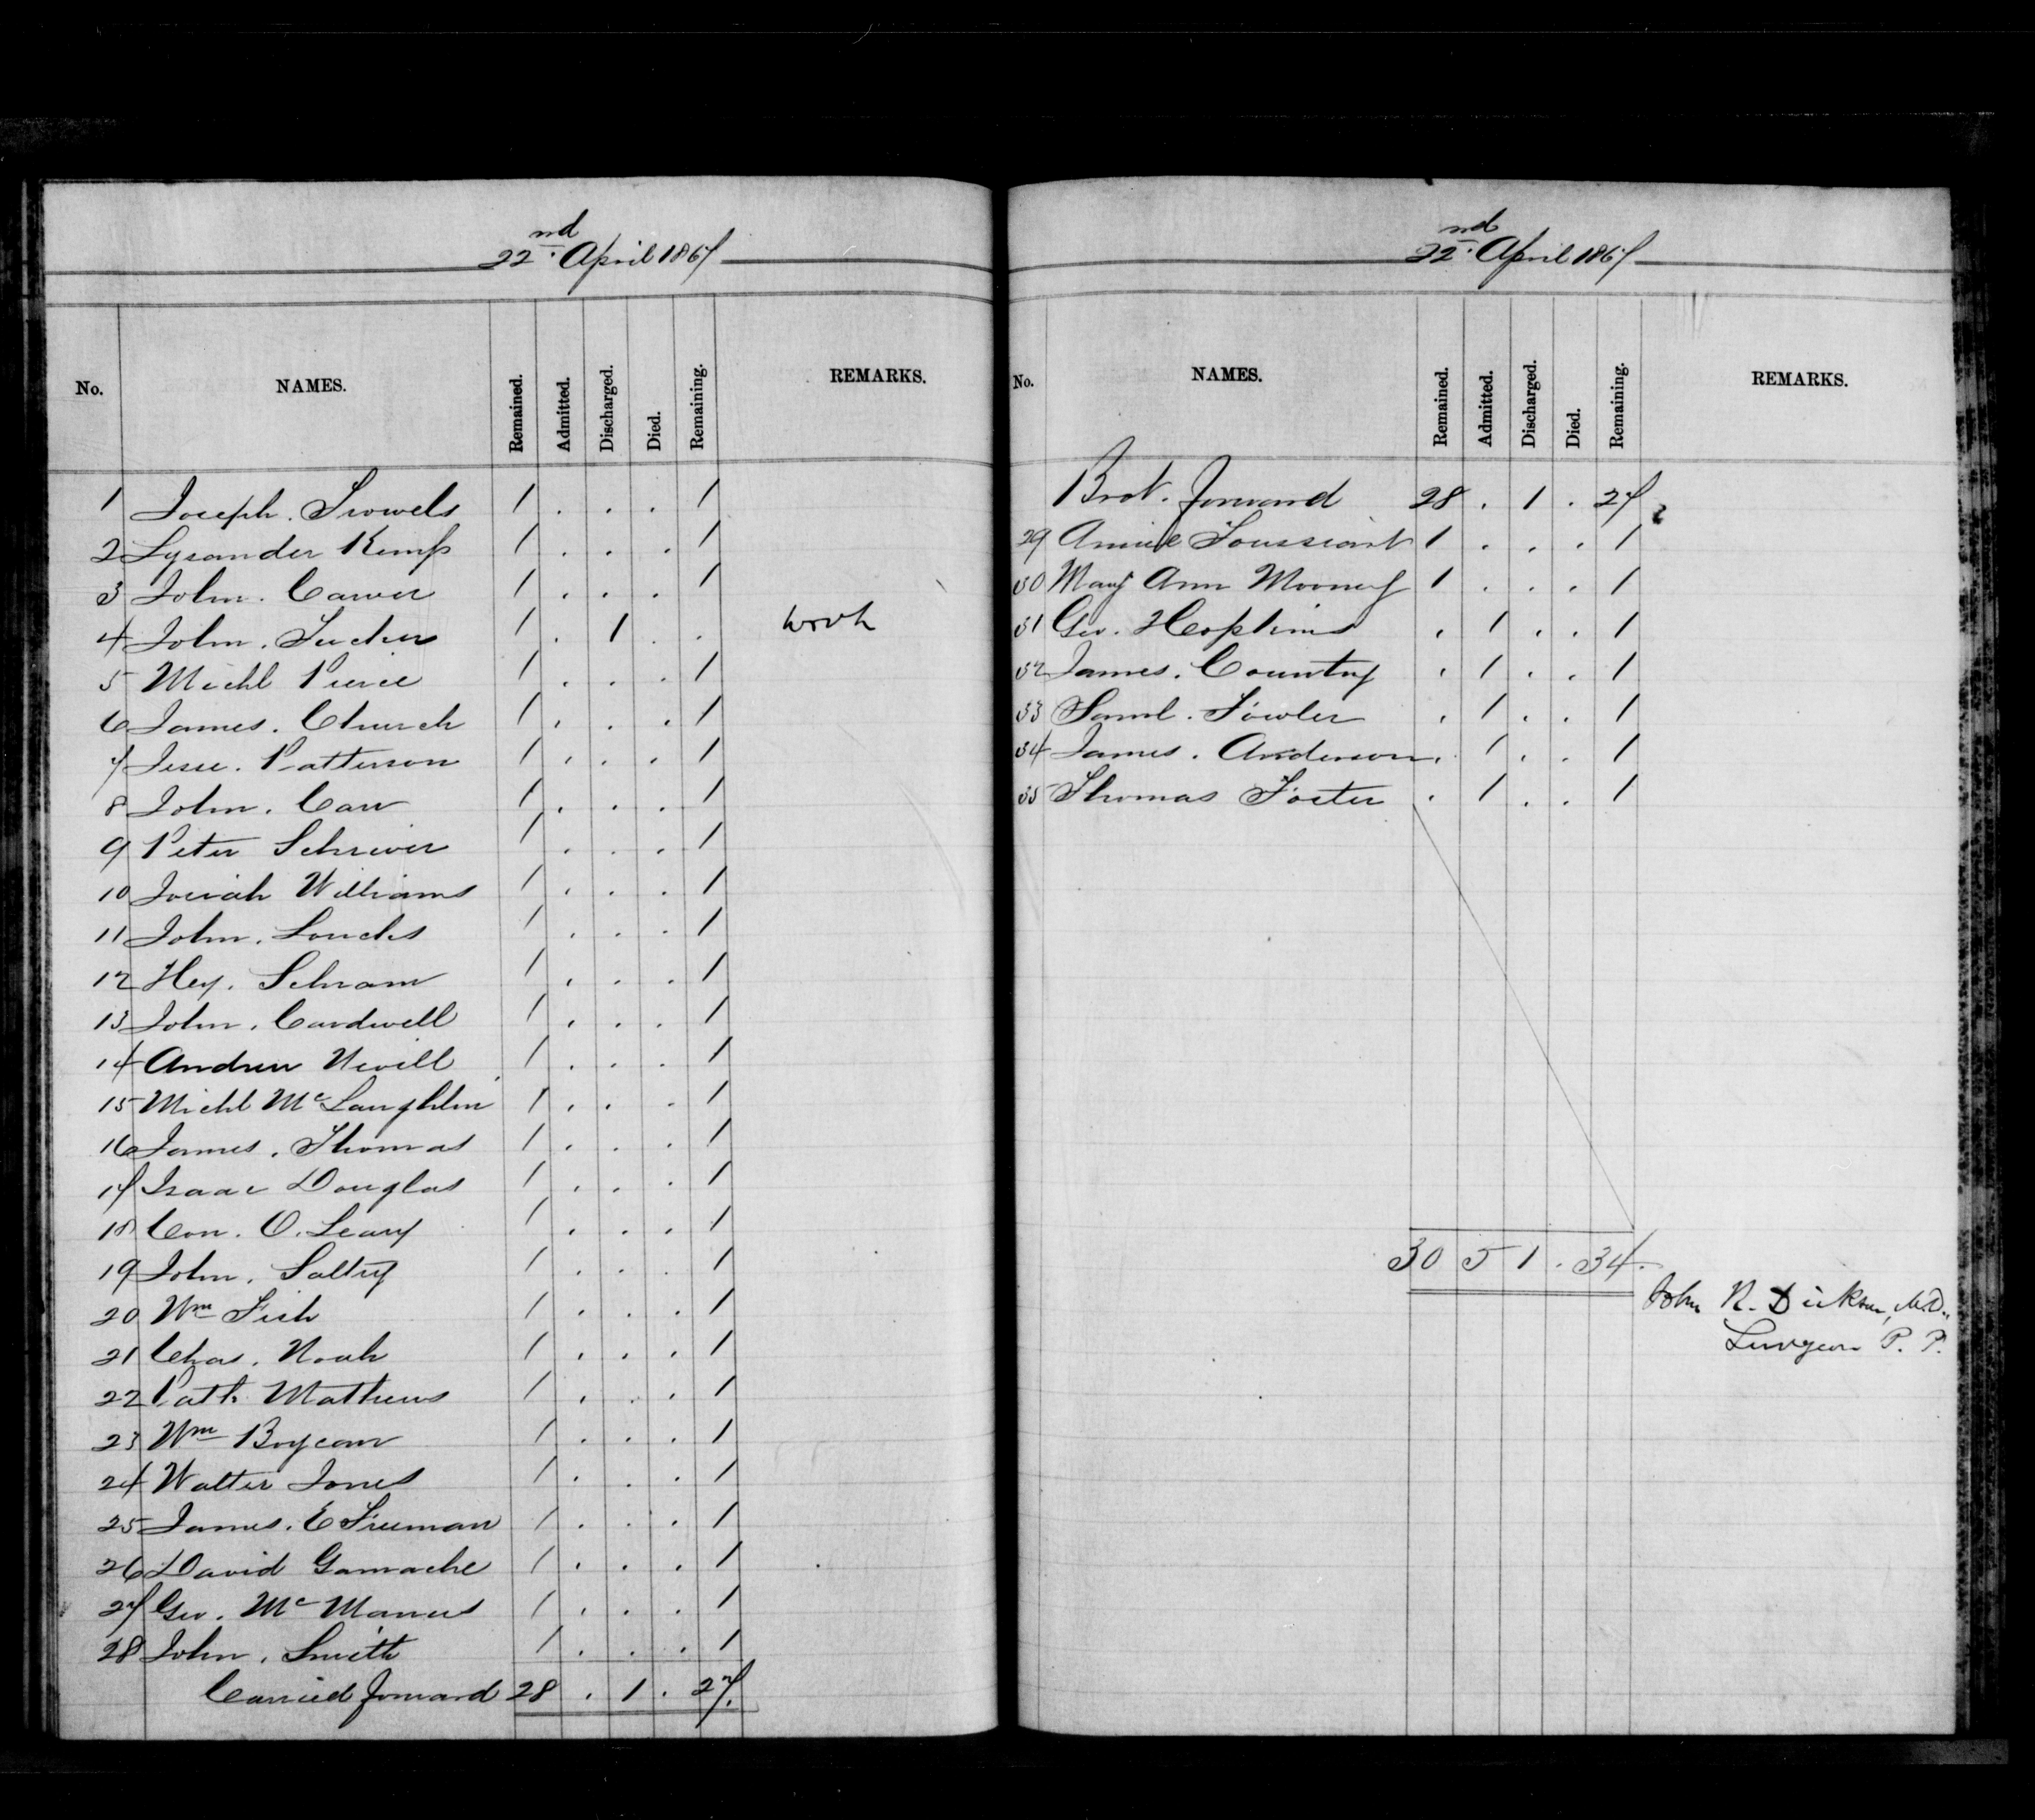 22nd. April 1867
No. NAMES. Remained. Admitted. Discharged. Died. Remaining. REMARKS.
1 Joseph. Trowels 1 . . . 1
2 Lysander Kemp 1 . . . 1
3 John. Carver 1 . . . 1
4 John. Tucker 1 . 1 . . work
5 Michl Pierce 1 . . . 1
6 James. Church 1 . . . 1
7 Jesse. Patterson 1 . . . 1
8 John. Carr 1 . . . 1
9 Peter Schriver 1 . . . 1
10 Josiah Williams 1 . . . 1
11 John. Loucks 1 . . . 1
12 Hey. Schram 1 . . . 1
13 John. Cardwell 1 . . . 1
14 Andrew Nevill 1 . . . 1
15 Michl McLaughlin 1 . . . 1
16 James. Thomas 1 . . . 1
17 Isaac Douglas 1 . . . 1
18 Con. O. Leary 1 . . . 1
19 John. Saltry 1 . . . 1
20 Wm Fish 1 . . . 1
21 Chas. Noah 1 . . . 1
22 Patk Mathews 1 . . . 1
23 Wm Boycan 1 . . . 1
24 Walter Jones 1 . . . 1
25 James. E Freeman 1 . . . 1
26 David Gamache 1 . . . 1
27 Geo. McManus 1 . . . 1
28 John. Smith 1 . . . 1
Carried forward 28 . 1 . 27.
22nd. April 1867
No. NAMES. Remained. Admitted. Discharged. Died. Remaining. REMARKS.
Brot. forward 28 . 1 . 27
29 Annie Toussiant 1 . . . 1
30 Mary Ann Mooney 1 . . . 1
31 Geo. Hopkins . 1 . . 1
32 James. Country . 1 . . 1
33 Saml. Fowler . 1 . . 1
34 James. Anderson . 1 . . 1
35 Thomas Foster . 1 . . 1
30 5 1 . 34.
John R. Dickson, M.D.,
Surgeon P. P.